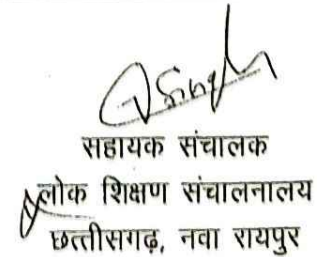 सहायक संचालक
लोक शिक्षण संचालनालय
छत्तीसगढ़, नवा रायपुर